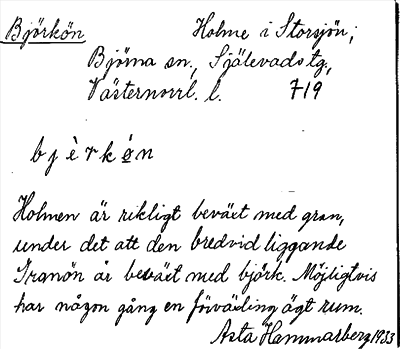 Björkön Holme i Storsjön,
Björna sn., Själevads tg.,
Västernorrl. l. 719
b j è r k ø n
Holmen är rikligt beväxt med gran,
under det att den bredvid liggande
Granön är beväxt med björk. Möjligtvis
har någon gång en förväxling ägt rum.
Asta Hammarberg 1933